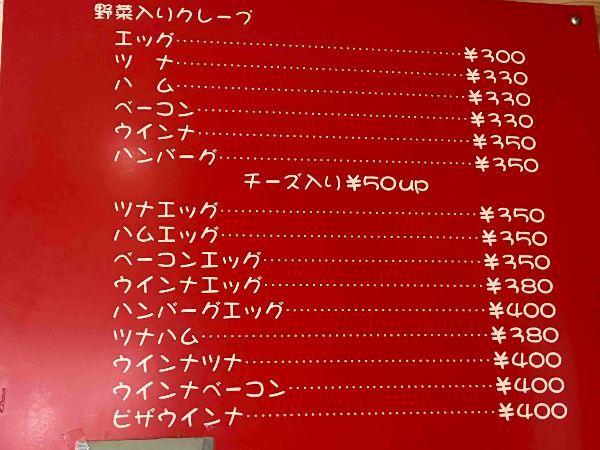 野菜入りクレープ
エッグ……………………………¥300
ツ ナ……………………………¥330
ハ ム……………………………¥330
ベーコン…………………………¥330
ウインナ…………………………¥350
ハンバーグ………………………¥350
チーズ入り¥50up
ツナエッグ………………………¥350
ハムエッグ………………………¥350
ベーコンエッグ…………………¥350
ウインナエッグ…………………¥380
ハンバーグエッグ………………¥400
ツナハム…………………………¥380
ウインナツナ……………………¥400
ウインナベーコン………………¥400
ピザウインナ……………………¥400